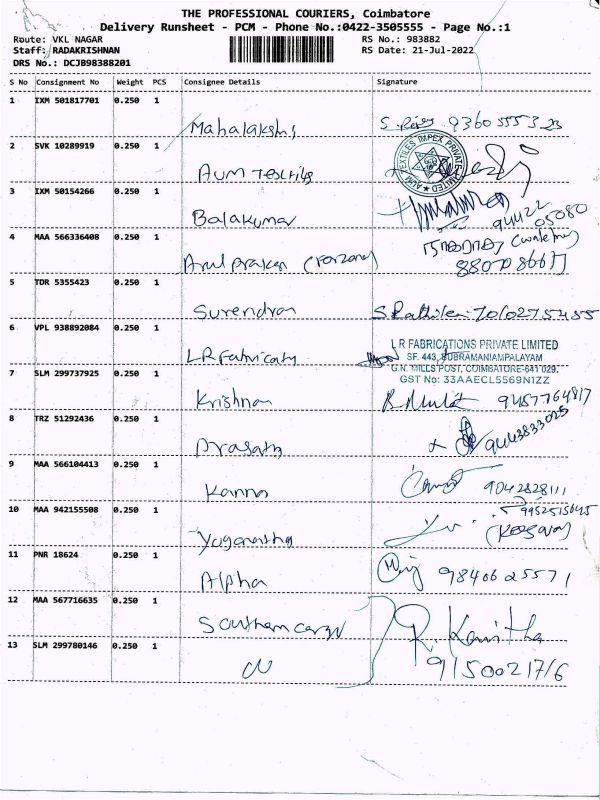 THE PROFESSIONAL COURIERS, Coimbatore
Delivery Runsheet - PCM - Phone No.:0422-3505555 - Page No.:1
Route: VKL NAGAR RS No.: 983882
Staff: RADAKRISHNAN RS Date: 21-Jul-2022
DRS No.: DCJB98388201
S No Consignment No Weight PCS Consignee Details Signature
1 IXM 501817701 0.250 1 Mahalakshmi 9360555323
2 SVK 10289919 0.250 1 Aum Textiles
TEXTILES IMPEX PRIVATE LIMITED
3 IXM 50154266 0.250 1 Balakumar 94422 05080
4 MAA 566336408 0.250 1 Arul prakash
5 TDR 5355423 0.250 1 Surendran
6 VPL 938892084 0.250 1 LR Fabricaty
L R FABRICATIONS PRIVATE LIMITED
SF. 443, SUBRAMANIAMPALAYAM
G.N. MILLS POST, COIMBATORE-641 029.
GST No: 33AAECL5569N1ZZ
7 SLM 299737925 0.250 1 Krishnan 9457764817
8 TRZ 51292436 0.250 1 Prasath 9443833025
9 MAA 566104413 0.250 1 Kanna 9042828111
10 MAA 942155508 0.250 1 9952515645
11 PNR 18624 0.250 1 Alpha 9840625571
12 MAA 567716635 0.250 1 Southern cargo R. Kavitha
13 SLM 299780146 0.250 1 9150021716